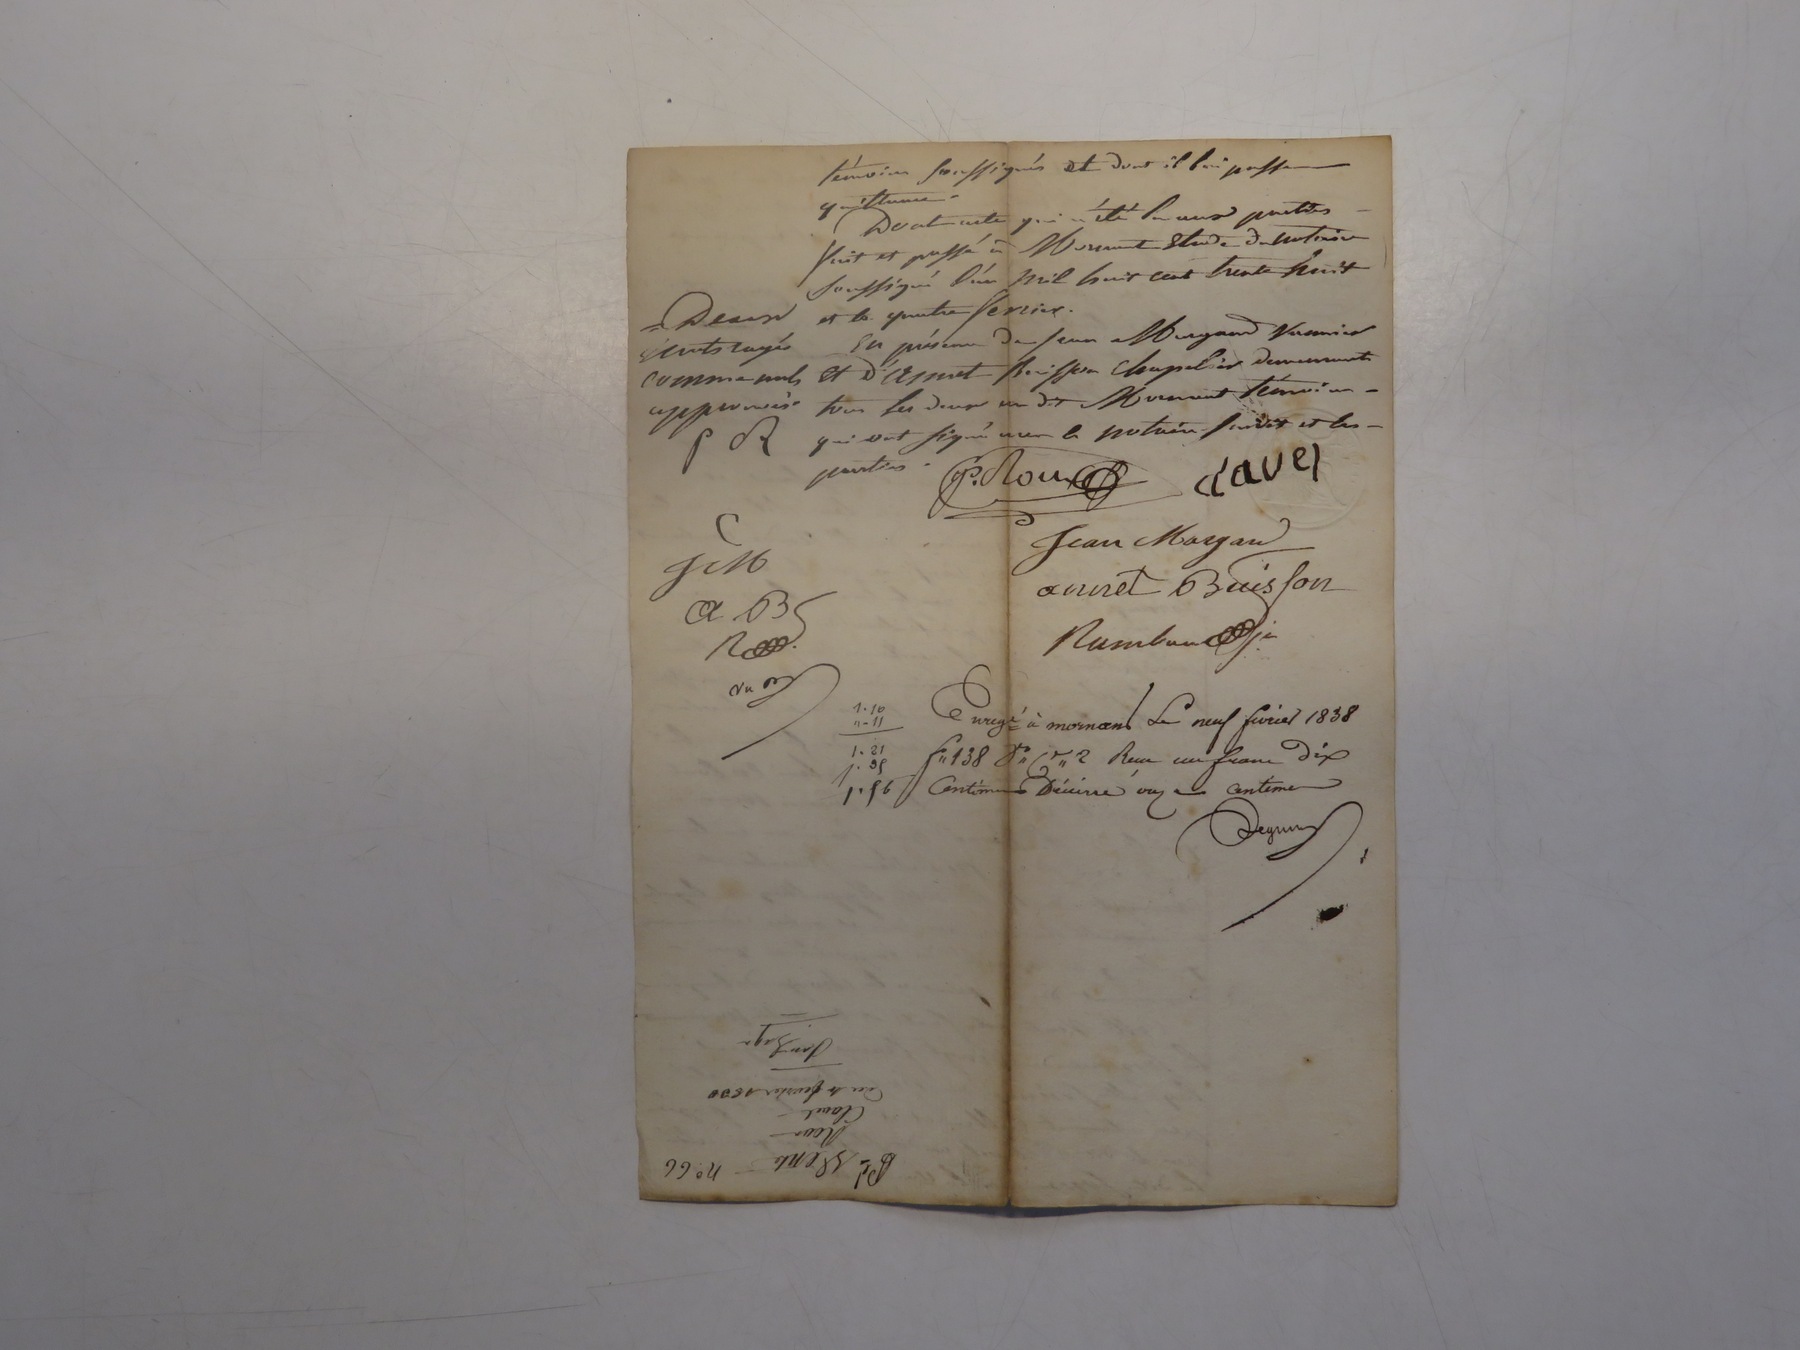 témoins soussignés et dont il lui passe
quittance.
Dont acte qui a été lu aux parties
fait et passé à Mornant Etude du notaire
soussigné l'an mil huit cent trente huit
et le quatre février.
En présence de Jean Margand
et d'Annet Buisson Chapelier demeurant
tous les deux au dit Mornant témoins
qui ont signé avec le notaire susdit et les
parties.
= Deux
mots rayés
comme nuls
approuvés.
P R
P. Roux
Clavel
C
J M
A B
R
Jean Margand
annet Buisson
Rambaud
1.10
"-11
1.21
1.56
Enregé à mornant Le neuf février 1838
fo 138 Ro Ce 2 Reçu un franc dix
Centimes Décime onze centimes
No 66
Roux
Clavel